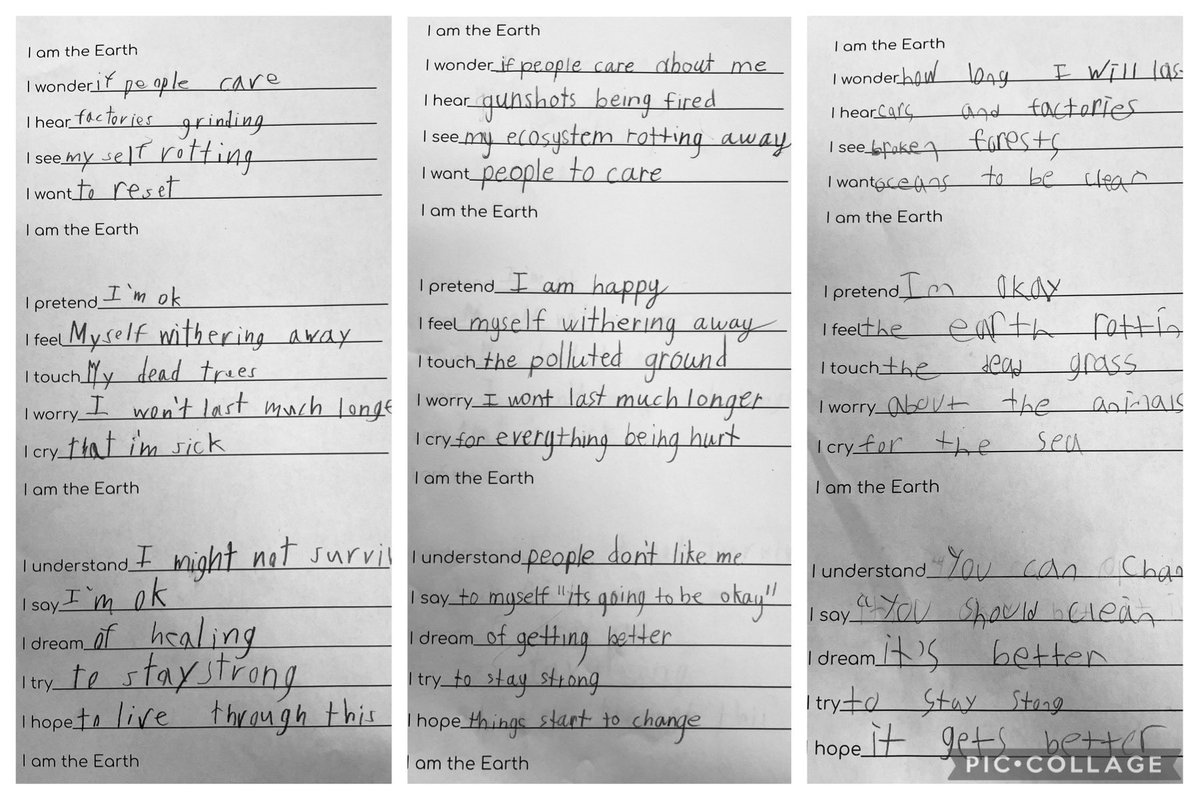 I am the Earth
I wonder if people care
I hear factories grinding
I see my self rotting
I want to reset
I am the Earth
I pretend I'm ok
I feel Myself withering away
I touch My dead trees
I worry I won't last much longe
I cry that i'm sick
I am the Earth
I understand I might not survi
I say I'm ok
I dream of healing
I try to stay strong
I hope to live through this
I am the Earth
I am the Earth
I wonder if people care about me
I hear gunshots being fired
I see my ecosystem rotting away
I want people to care
I am the Earth
I pretend I am happy
I feel myself withering away
I touch the polluted ground
I worry I wont last much longer
I cry for everything being hurt
I am the Earth
I understand people don't like me
I say to myself "its going to be okay"
I dream of getting better
I try to stay strong
I hope things start to change
I am the Earth
I am the Earth
I wonder how long I will las
I hear cars and factories
I see broken forests
I want oceans to be clean
I am the Earth
I pretend Im okay
I feel the earth rottin
I touch the dead grass
I worry about the animals
I cry for the sea
I am the Earth
I understand "You can Chan
I say "You should clean
I dream it's better
I try to stay stong
hope it gets better
PIC•COLLAGE